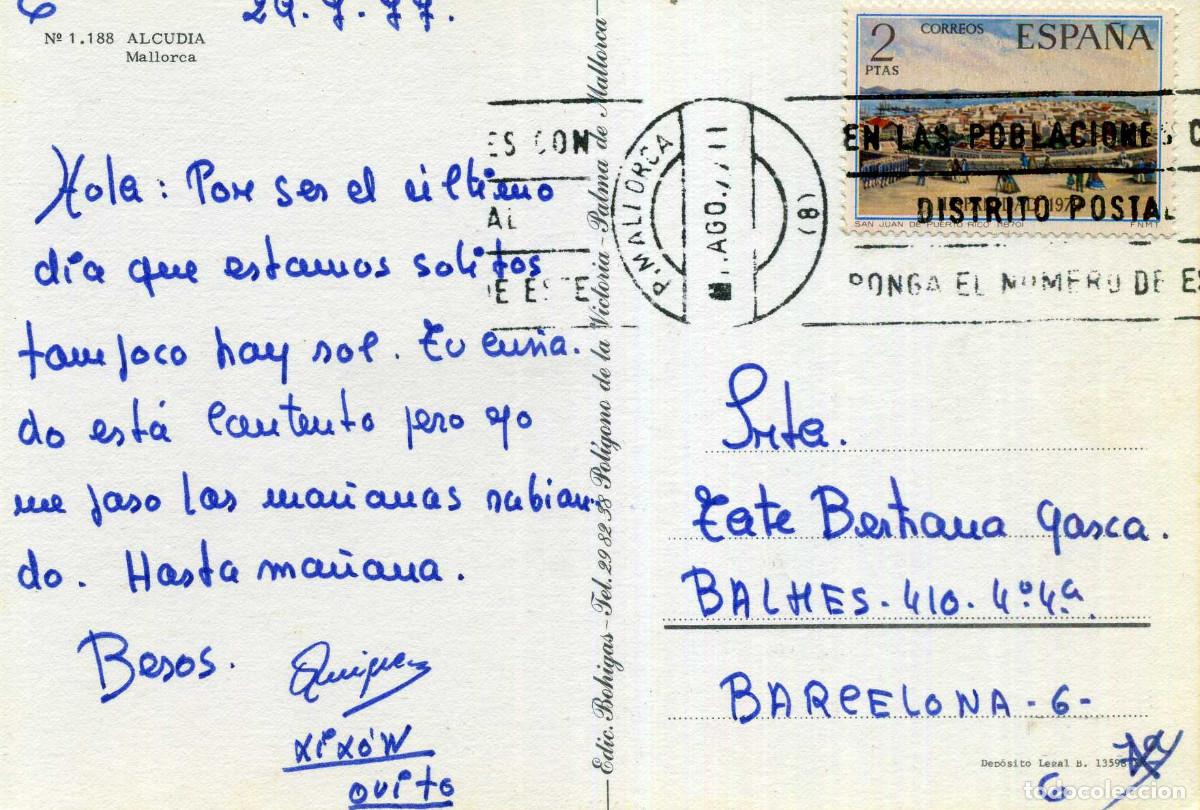 29.7.77.
Nº 1.188 ALCUDIA
Mallorca
Hola: Por ser el último
día que estamos solitos
tampoco hay sol. Tu cuña.
do está contento pero yo
me paso las mañanas rabian-
do. Hasta mañana.
Besos.
xixón
ovito
Edic. Bohigas - Tel. 29 82 38 Polígono de la Victoria - Palma de Mallorca
2
PTAS
CORREOS
ESPAÑA
SAN JUAN DE PUERTO RICO (1870)
F.N.M.T
ES CON
AL
DE ESTE
P. MALLORCA
AGO.77 11
(8)
EN LAS POBLACIONES C
DISTRITO POSTAL
PONGA EL NUMERO DE ES
Srta.
Tate Bertrana Gasca.
BALMES-410-4º4ª
BARCELONA-6-
Depósito Legal B. 13598
6
todocoleccion